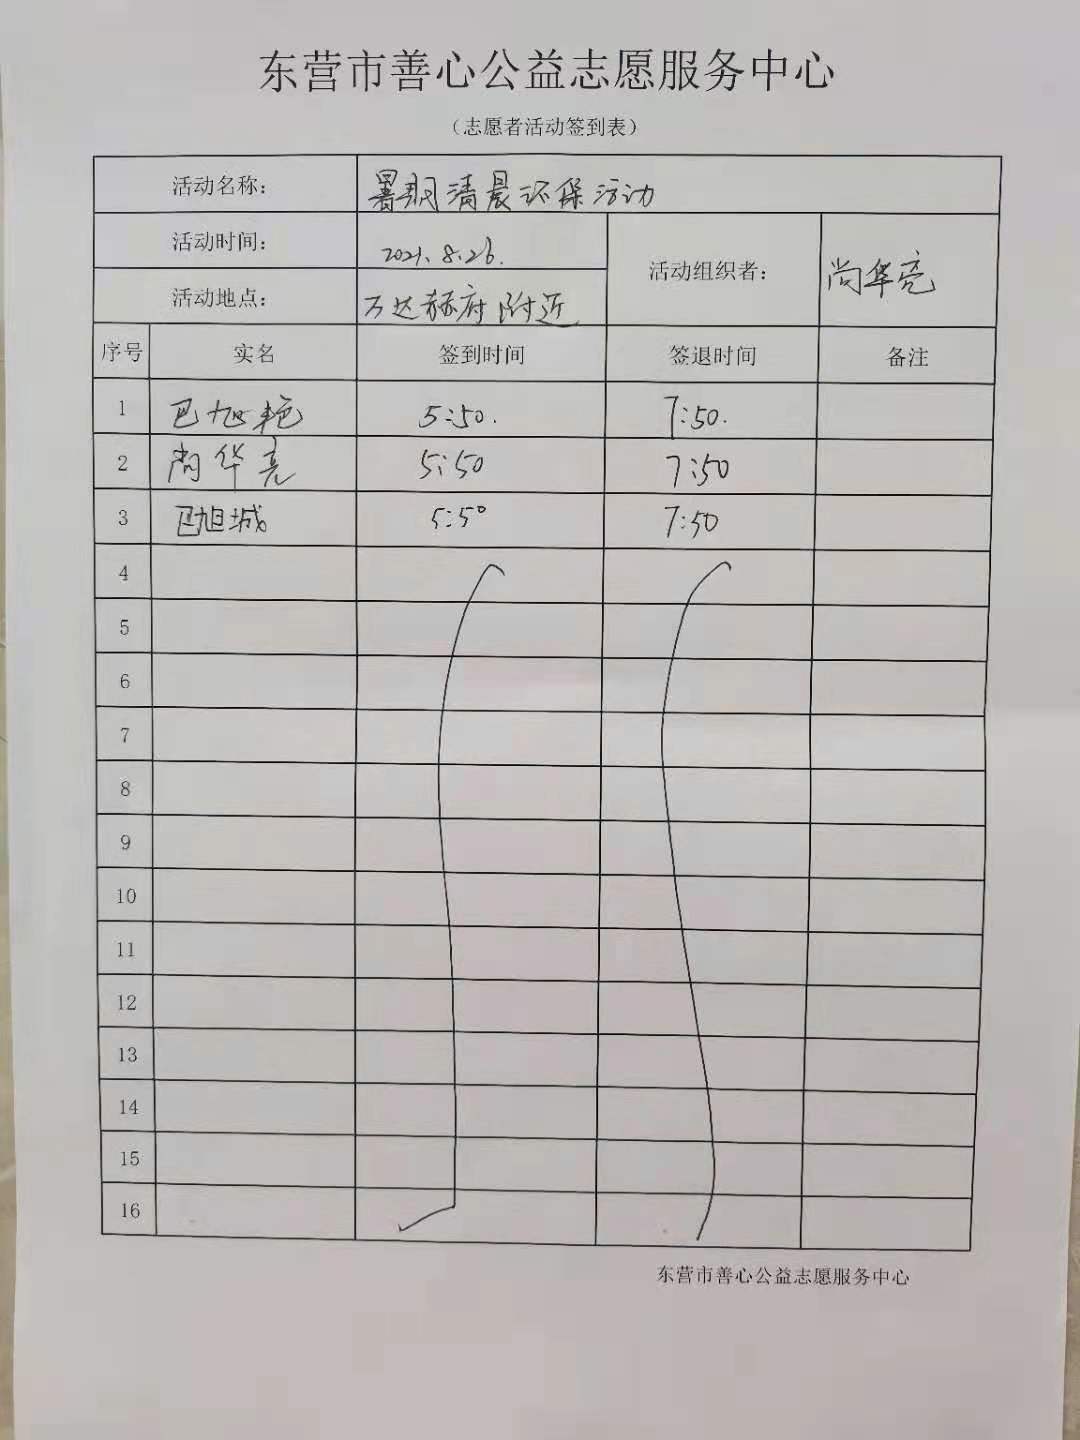 东营市善心公益志愿服务中心
（志愿者活动签到表）
活动名称： 暑期清晨环保活动
活动时间： 2021.8.26. 活动组织者： 尚华亮
活动地点： 万达赫府附近
序号 实名 签到时间 签退时间 备注
1 巴旭艳 5:50. 7:50.
2 尚华亮 5:50 7:50
3 巴旭城 5:50 7:50
4
5
6
7
8
9
10
11
12
13
14
15
16
东营市善心公益志愿服务中心